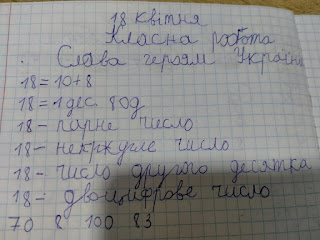 18 квітня
Класна робота
Слава героям України
18=10+8
18=1дес. 8од
18- парне число
18- некругле число
18- число другого десятка
18- двоцифрове число
70 8 100 83